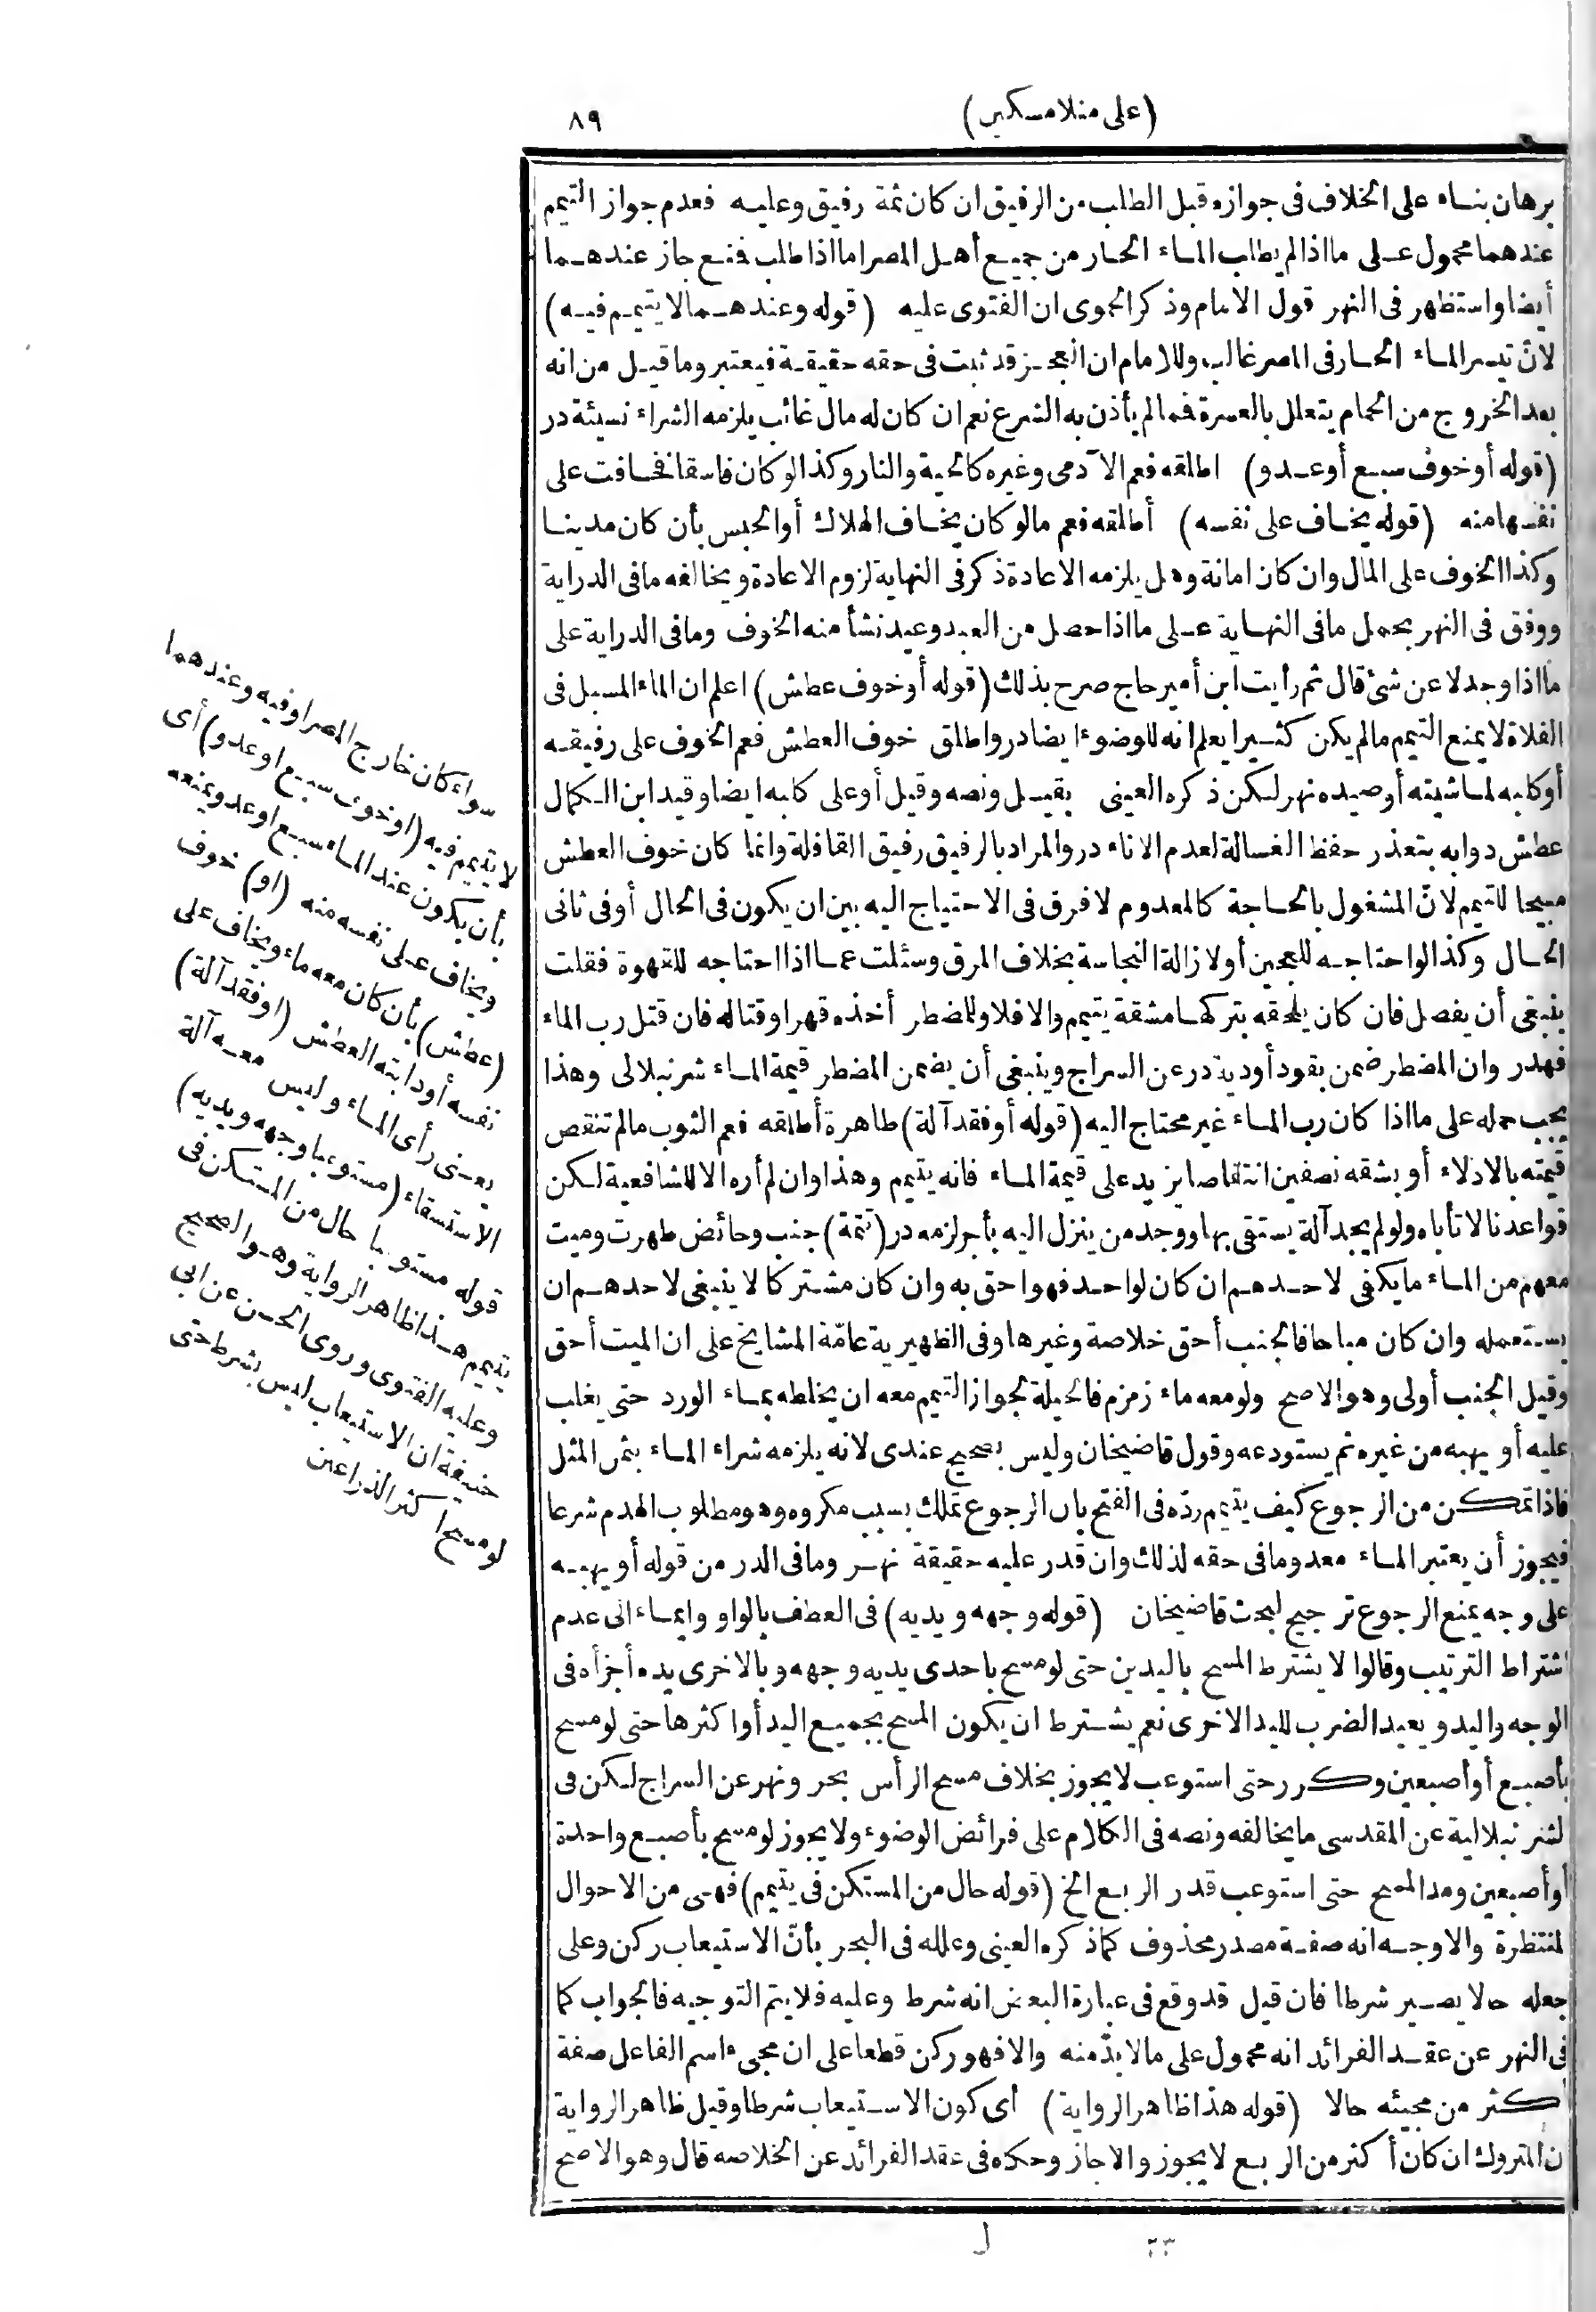 (على منلا مسكين)
٨٩
برهان بناه على الخلاف فى جوازه قبل الطلب من الرفيق ان كان ثمة رفيق وعليه فعدم جواز التيمم
عندهما محمول على ما اذا لم يطلب الماء الحار من جميع أهل المصر اما اذا طلب فمنع جاز عندهما
أيضا واستظهر فى النهر قول الامام وذكر الحموى ان الفتوى عليه (قوله وعندهما لا يتيمم فيه)
لانّ تيسر الماء الحار فى المصر غالب وللامام ان العجز قد ثبت فى حقه حقيقة فيعتبر وما قيل من انه
بعد الخروج من الحمام يتعلل بالعسرة فمما لم يأذن به الشرع نعم ان كان له مال غائب يلزمه الشراء نسيئة در
(قوله أو خوف سبع أو عدو) اطلقه فعم الآدمى وغيره كالحية والنار وكذا لو كان فاسقا فخافت على
نفسها منه (قوله يخاف على نفسه) أطلقه فعم ما لو كان يخاف الهلاك أو الحبس بأن كان مدينا
وكذا الخوف على المال وان كان امانة وهل يلزمه الاعادة ذكر فى النهاية لزوم الاعادة ويخالفه ما فى الدراية
ووفق فى النهر بحمل ما فى النهاية على ما اذا حصل من العبد وعيد نشأ منه الخوف وما فى الدراية على
ما اذا وجد لا عن شئ قال ثم رأيت ابن أمير حاج صرح بذلك (قوله أو خوف عطش) اعلم ان الماء المسبل فى
الفلاة لا يمنع التيمم ما لم يكن كثيرا يعلم انه للوضوء ايضا در واطلق خوف العطش فعم الخوف على رفيقه
أو كلبه لماشيته أو صيده نهر لكن ذكره العينى بقيل ونصه وقيل أو على كلبه ايضا وقيد ابن الكمال
عطش دوابه بتعذر حفظ الغسالة لعدم الاناء در والمراد بالرفيق رفيق القافلة وانما كان خوف العطش
مبيحا للتيمم لانّ المشغول بالحاجة كالمعدوم لا فرق فى الاحتياج اليه بين ان يكون فى الحال أو فى ثانى
الحال وكذا لو احتاجه للعجين أو لازالة النجاسة بخلاف المرق وسئلت عما اذا احتاجه للقهوة فقلت
ينبغى أن يفصل فان كان يلحقه بتركها مشقة يتيمم والا فلا وللمضطر أخذه قهرا وقتاله فان قتل رب الماء
فهدر وان المضطر ضمن بقود أو دية در عن السراج وينبغى أن يضمن المضطر قيمة الماء شرنبلالى وهذا
يجب حمله على ما اذا كان رب الماء غير محتاج اليه (قوله أو فقد آلة) طاهرة أطلقه فعم الثوب ما لم تنقص
قيمته بالادلاء أو بشقه نصفين انتقاصا يزيد على قيمة الماء فانه يتيمم وهذا وان لم أره الا للشافعية لكن
قواعدنا لا تأباه ولو لم يجد آلة يستقى بها ووجد من ينزل اليه بأجر لزمه در (تتمة) جنب وحائض طهرت وميت
معهم من الماء ما يكفى لاحدهم ان كان لواحد فهو احق به وان كان مشتركا لا ينبغى لاحدهم ان
يستعمله وان كان مباحا فالجنب أحق خلاصة وغيرها وفى الظهيرية عامّة المشايخ على ان الميت أحق
وقيل الجنب أولى وهو الاصح ولو معه ماء زمزم فالحيلة لجواز التيمم معه ان يخلطه بماء الورد حتى يغلب
عليه أو يهبه من غيره ثم يستودعه وقول قاضيخان وليس بصحيح عندى لانه يلزمه شراء الماء بثمن المثل
فاذا تمكن من الرجوع كيف يتيمم ردّه فى الفتح بان الرجوع تملك بسبب مكروه وهو مطلوب الهدم شرعا
فيجوز أن يعتبر الماء معدوما فى حقه لذلك وان قدر عليه حقيقة نهر وما فى الدر من قوله أو يهبه
على وجه يمنع الرجوع ترجيح لبحث قاضيخان (قوله وجهه ويديه) فى العطف بالواو وايماء الى عدم
اشتراط الترتيب وقالوا لا يشترط المسح باليدين حتى لو مسح باحدى يديه وجهه وبالاخرى يده أجزأه فى
الوجه واليد ويعيد الضرب لليد الاخرى نعم يشترط ان يكون المسح بجميع اليد أو اكثرها حتى لو مسح
بأصبع أو أصبعين وكرر حتى استوعب لا يجوز بخلاف مسح الرأس بحر ونهر عن السراج لكن فى
لشرنبلالية عن المقدسى ما يخالفه ونصه فى الكلام على فرائض الوضوء ولا يجوز لو مسح بأصبع واحدة
أو أصبعين ومد المسح حتى استوعب قدر الربع الخ (قوله حال من المستكن فى يتيمم) فهى من الاحوال
لمنتظرة والاوجه انه صفة مصدر محذوف كما ذكره العينى وعلله فى البحر بأنّ الاستيعاب ركن وعلى
جعله حالا يصير شرطا فان قيل قد وقع فى عبارة البعض انه شرط وعليه فلا يتم التوجيه فالجواب كما
فى النهر عن عقد الفرائد انه محمول على ما لا بدّ منه والا فهو ركن قطعا على ان مجىء اسم الفاعل صفة
أكثر من مجيئه حالا (قوله هذا ظاهر الرواية) أى كون الاستيعاب شرطا وقيل ظاهر الرواية
ن المتروك ان كان أكثر من الربع لا يجوز والا جاز وحكاه فى عقد الفرائد عن الخلاصه قال وهو الاصح
سواء كان خارج المصر او فيه وعندهما
لا يتيمم فيه (او خوف سبع او عدو) أى
بأن يكون عند الماء سبع او عدو يمنعه
ويخاف على نفسه منه (او) خوف
(عطش) بأن كان معه ماء ويخاف على
نفسه أو دابته العطش (او فقد آلة)
يعنى رأى الماء وليس معه آلة
الاستسقاء (مستوعبا وجهه ويديه)
قوله مستوعبا حال من المستكن فى
يتيمم هذا ظاهر الرواية وهو الصحيح
وعليه الفتوى وروى الحسن عن ابى
حنيفة ان الاستيعاب ليس بشرط حتى
لو مسح اكثر الذراعين
ل
٢٣